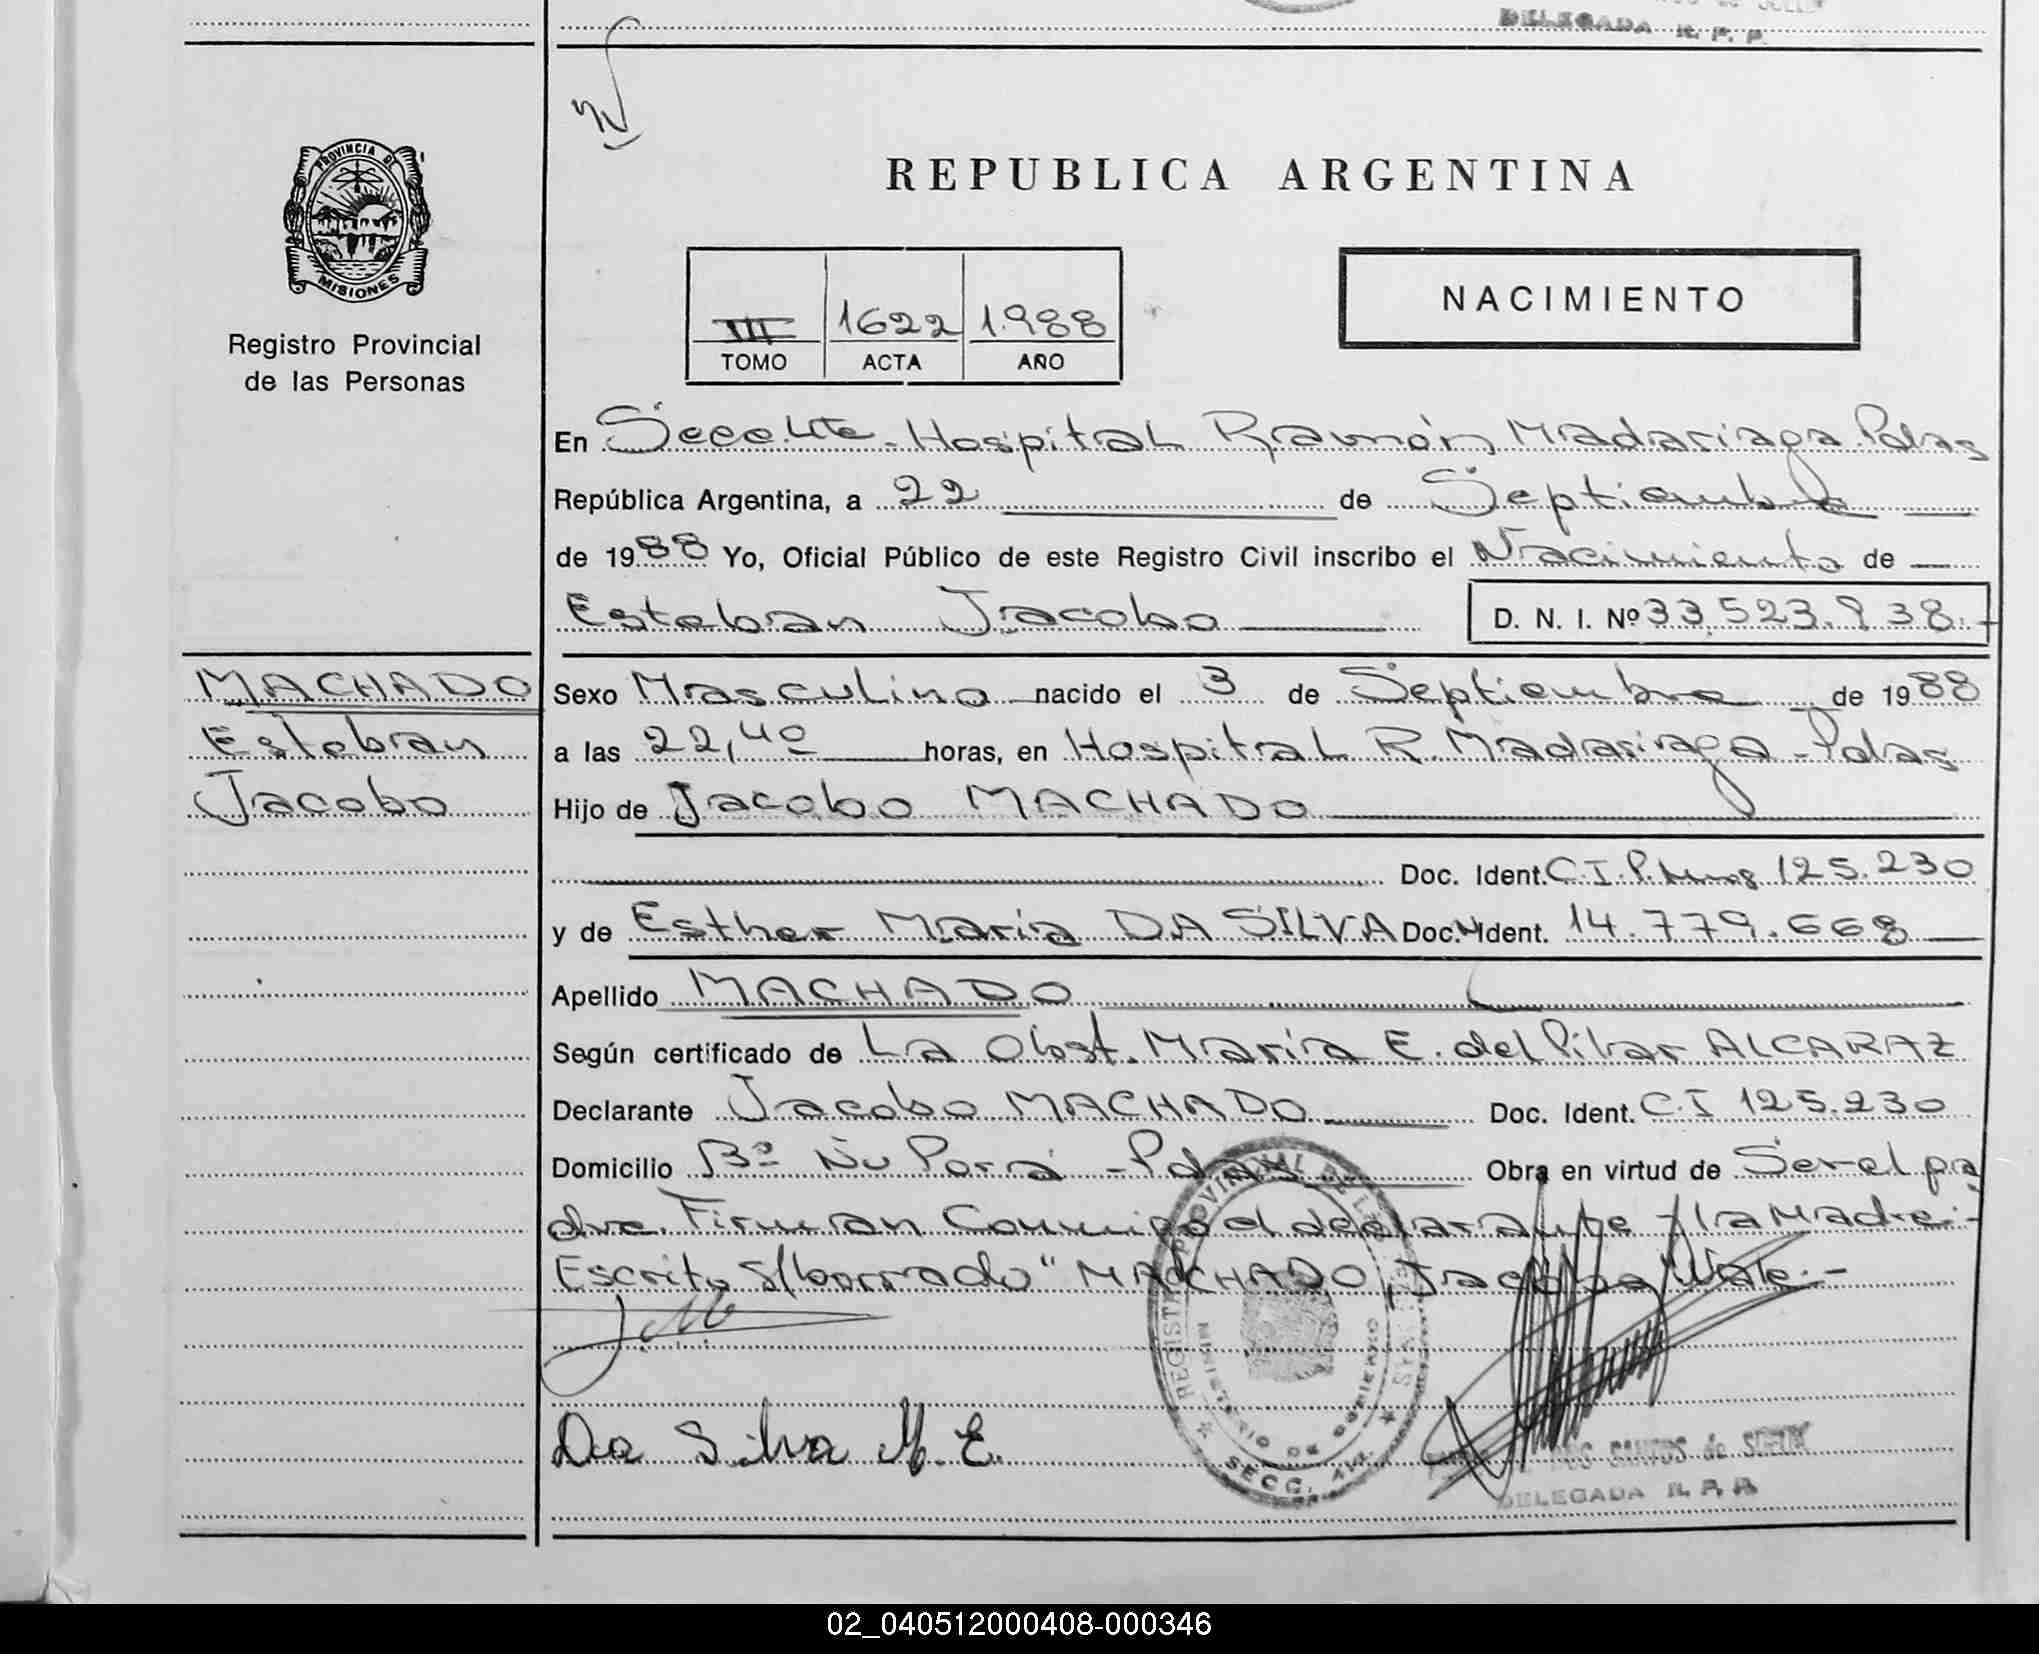 DELEGADA R. P. P.
PROVINCIA DE
MISIONES
Registro Provincial
de las Personas
REPUBLICA ARGENTINA
NACIMIENTO
III 1622 1.988
TOMO ACTA AÑO
En Secc. Hospital Ramón Madariaga Pdas
República Argentina, a 22 de Septiembre
de 1988 Yo, Oficial Público de este Registro Civil inscribo el Nacimiento de
Esteban Jacobo
D. N. I. Nº 33.523.938.-
MACHADO
Esteban
Jacobo
Sexo Masculino nacido el 3 de Septiembre de 1988
a las 22,40 horas, en Hospital R. Madariaga - Pdas
Hijo de Jacobo MACHADO
Doc. Ident. C.I. P. 125.230
y de Esther Maria DA SILVA Doc. Ident. 14.779.668
Apellido MACHADO
Según certificado de La Obst. María E. del Pilar ALCARAZ
Declarante Jacobo MACHADO Doc. Ident. C.I 125.230
Domicilio Bº Ñu Porá - Pdas Obra en virtud de Ser el pa
dre. Firman Conmigo el declarante y la Madre.-
Escrito s/borrado "MACHADO, Jacobo" Vale.-
Da Silva M. E.
REGISTRO PROVINCIAL DE LAS PERSONAS
MINISTERIO DE GOBIERNO
SECC.
DOS SANTOS de
DELEGADA R. P. P.
02_040512000408-000346